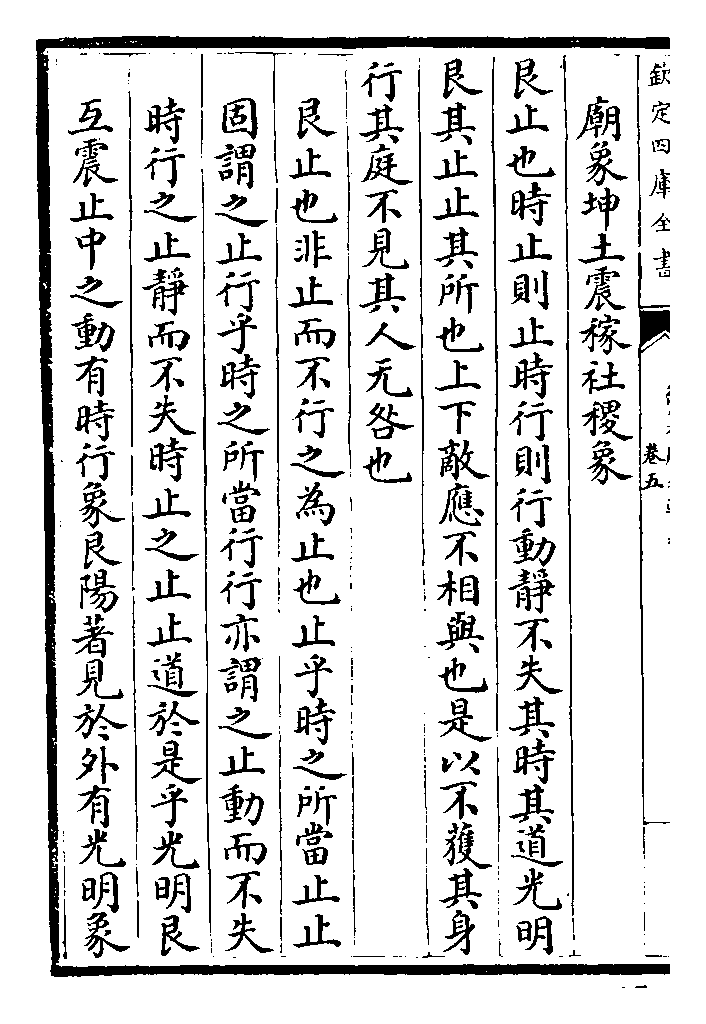 欽定四庫全書
卷五
廟象坤土震稼社稷象
艮止也時止則止時行則行動靜不失其時其道光明
艮其止止其所也上下敵應不相與也是以不獲其身
行其庭不見其人无咎也
艮止也非止而不行之為止也止乎時之所當止止
固謂之止行乎時之所當行行亦謂之止動而不失
時行之止靜而不失時止之止止道於是乎光明艮
互震止中之動有時行象艮陽著見於外有光明象